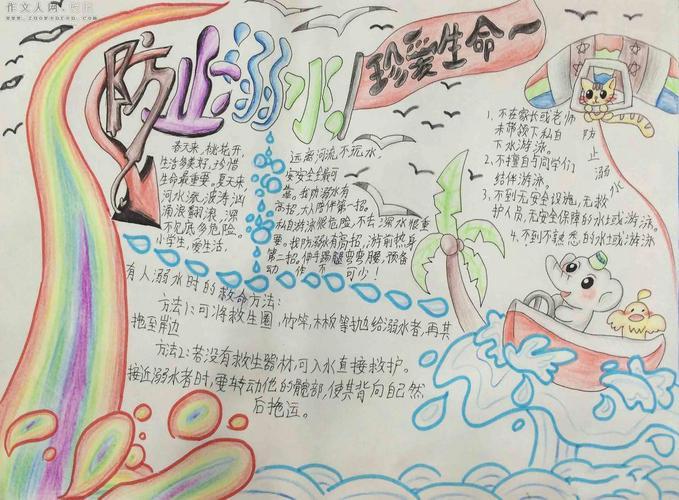 作文人网
防止溺水！
珍爱生命一
春天来,桃花开,
生活多美好,珍惜
生命最重要。夏天来,
河水涨,波涛汹
涌浪翻滚,深
不见底多危险。
小学生,爱生活,
远离河流不玩水,
安安全全最可
靠。我防溺水有
高招,大人陪伴第一招。
私自游泳很危险,不去深水很重
要。我防溺水有高招,游前热身
第二招。伸手踢腿弯弯腰,预备
动作不可少！
1、不在家长或老师
未带领下私自
下水游泳。
2、不擅自与同学们
结伴游泳。
3、不到无安全设施、无救
护人员、无安全保障的水域游泳。
4、不到不熟悉的水域游泳
防止溺水
有人溺水时的救命方法：
方法1：可将救生圈、竹竿、木板等抛给溺水者,再其
拖至岸边
方法2：若没有救生器材,可入水直接救护。
接近溺水者时,要转动他的髋部,使其背向自己然
后拖运。